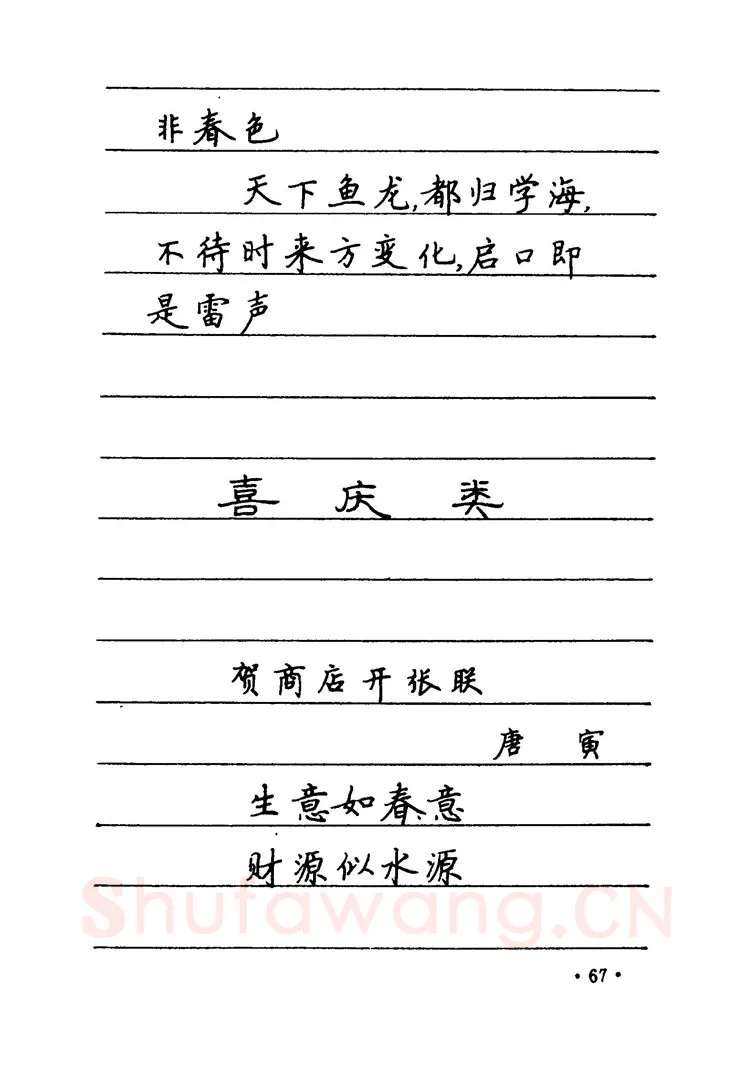 非春色
天下鱼龙,都归学海,
不待时来方变化,启口即
是雷声
喜庆类
贺商店开张联
唐寅
生意如春意
财源似水源
Shufawang.CN
·67·